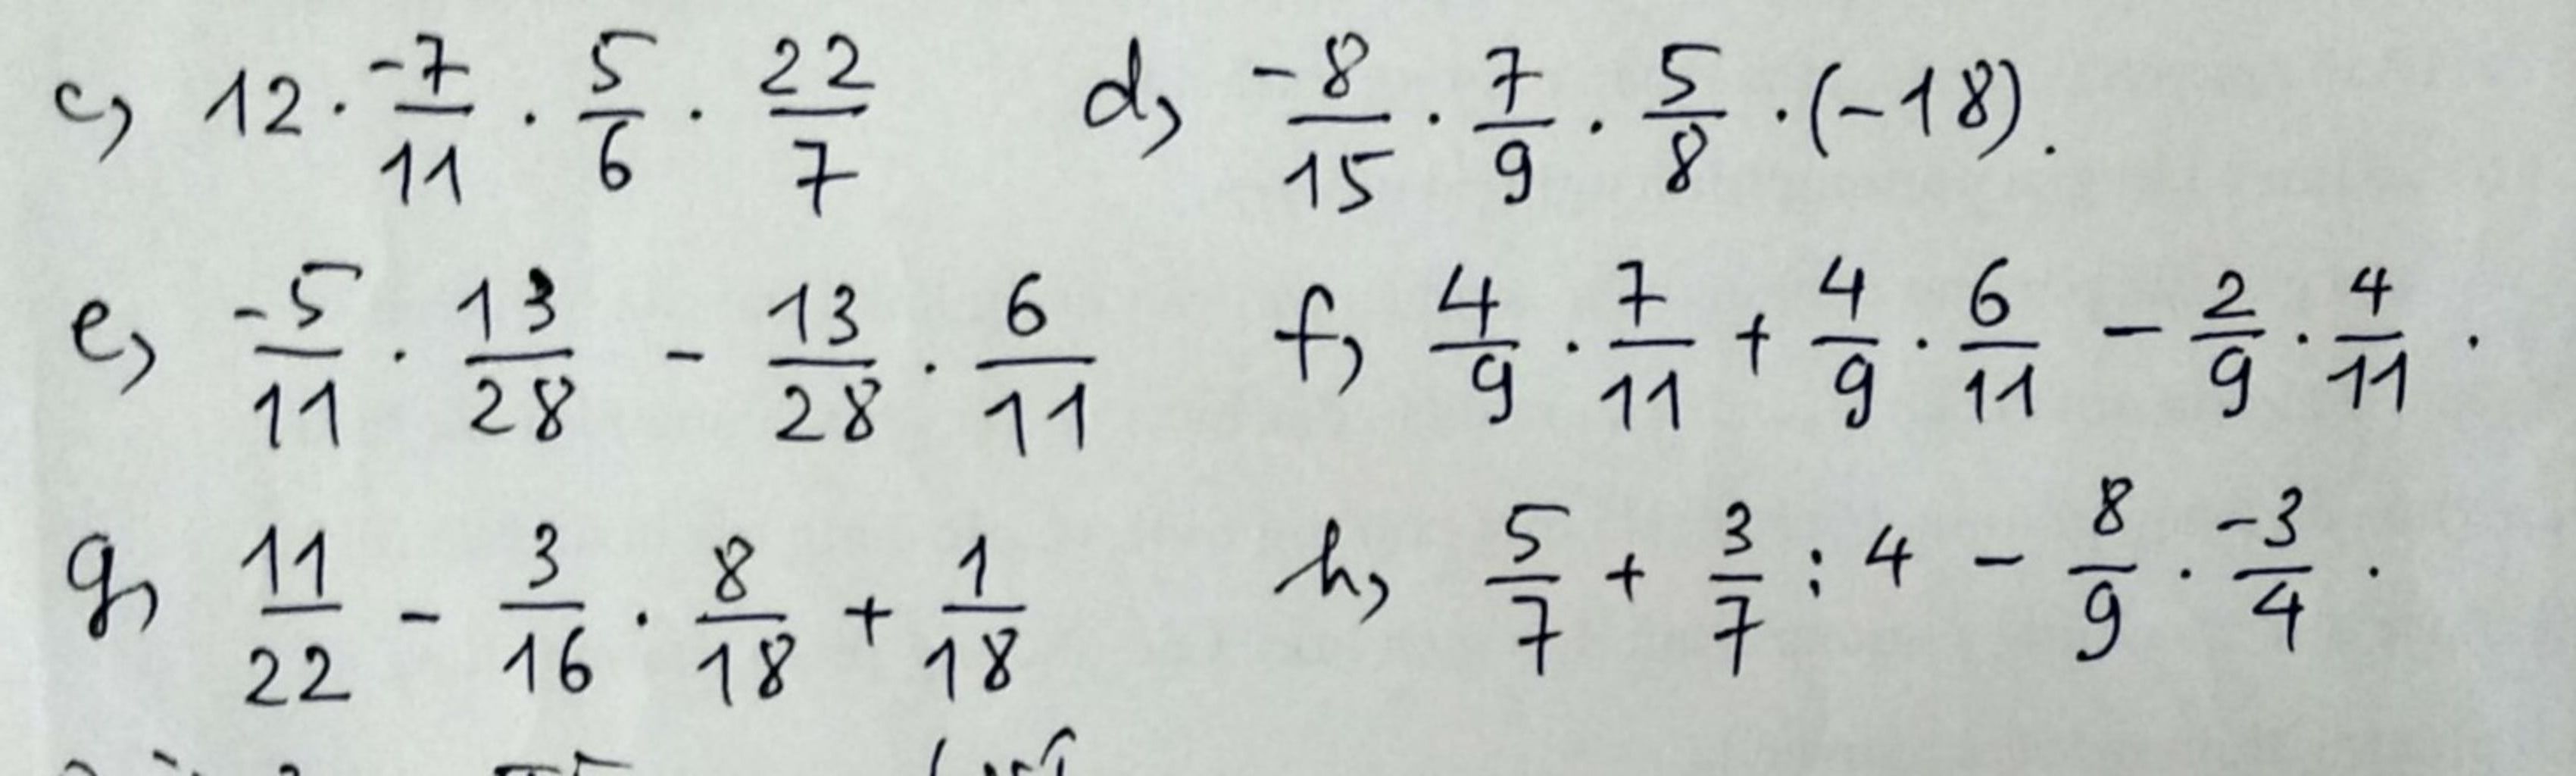 c, 12 · -7/11 · 5/6 · 22/7 d, -8/15 · 7/9 · 5/8 · (-18).
e, -5/11 · 13/28 - 13/28 · 6/11 f, 4/9 · 7/11 + 4/9 · 6/11 - 2/9 · 4/11 .
g, 11/22 - 3/16 · 8/18 + 1/18 h, 5/7 + 3/7 : 4 - 8/9 · -3/4 .